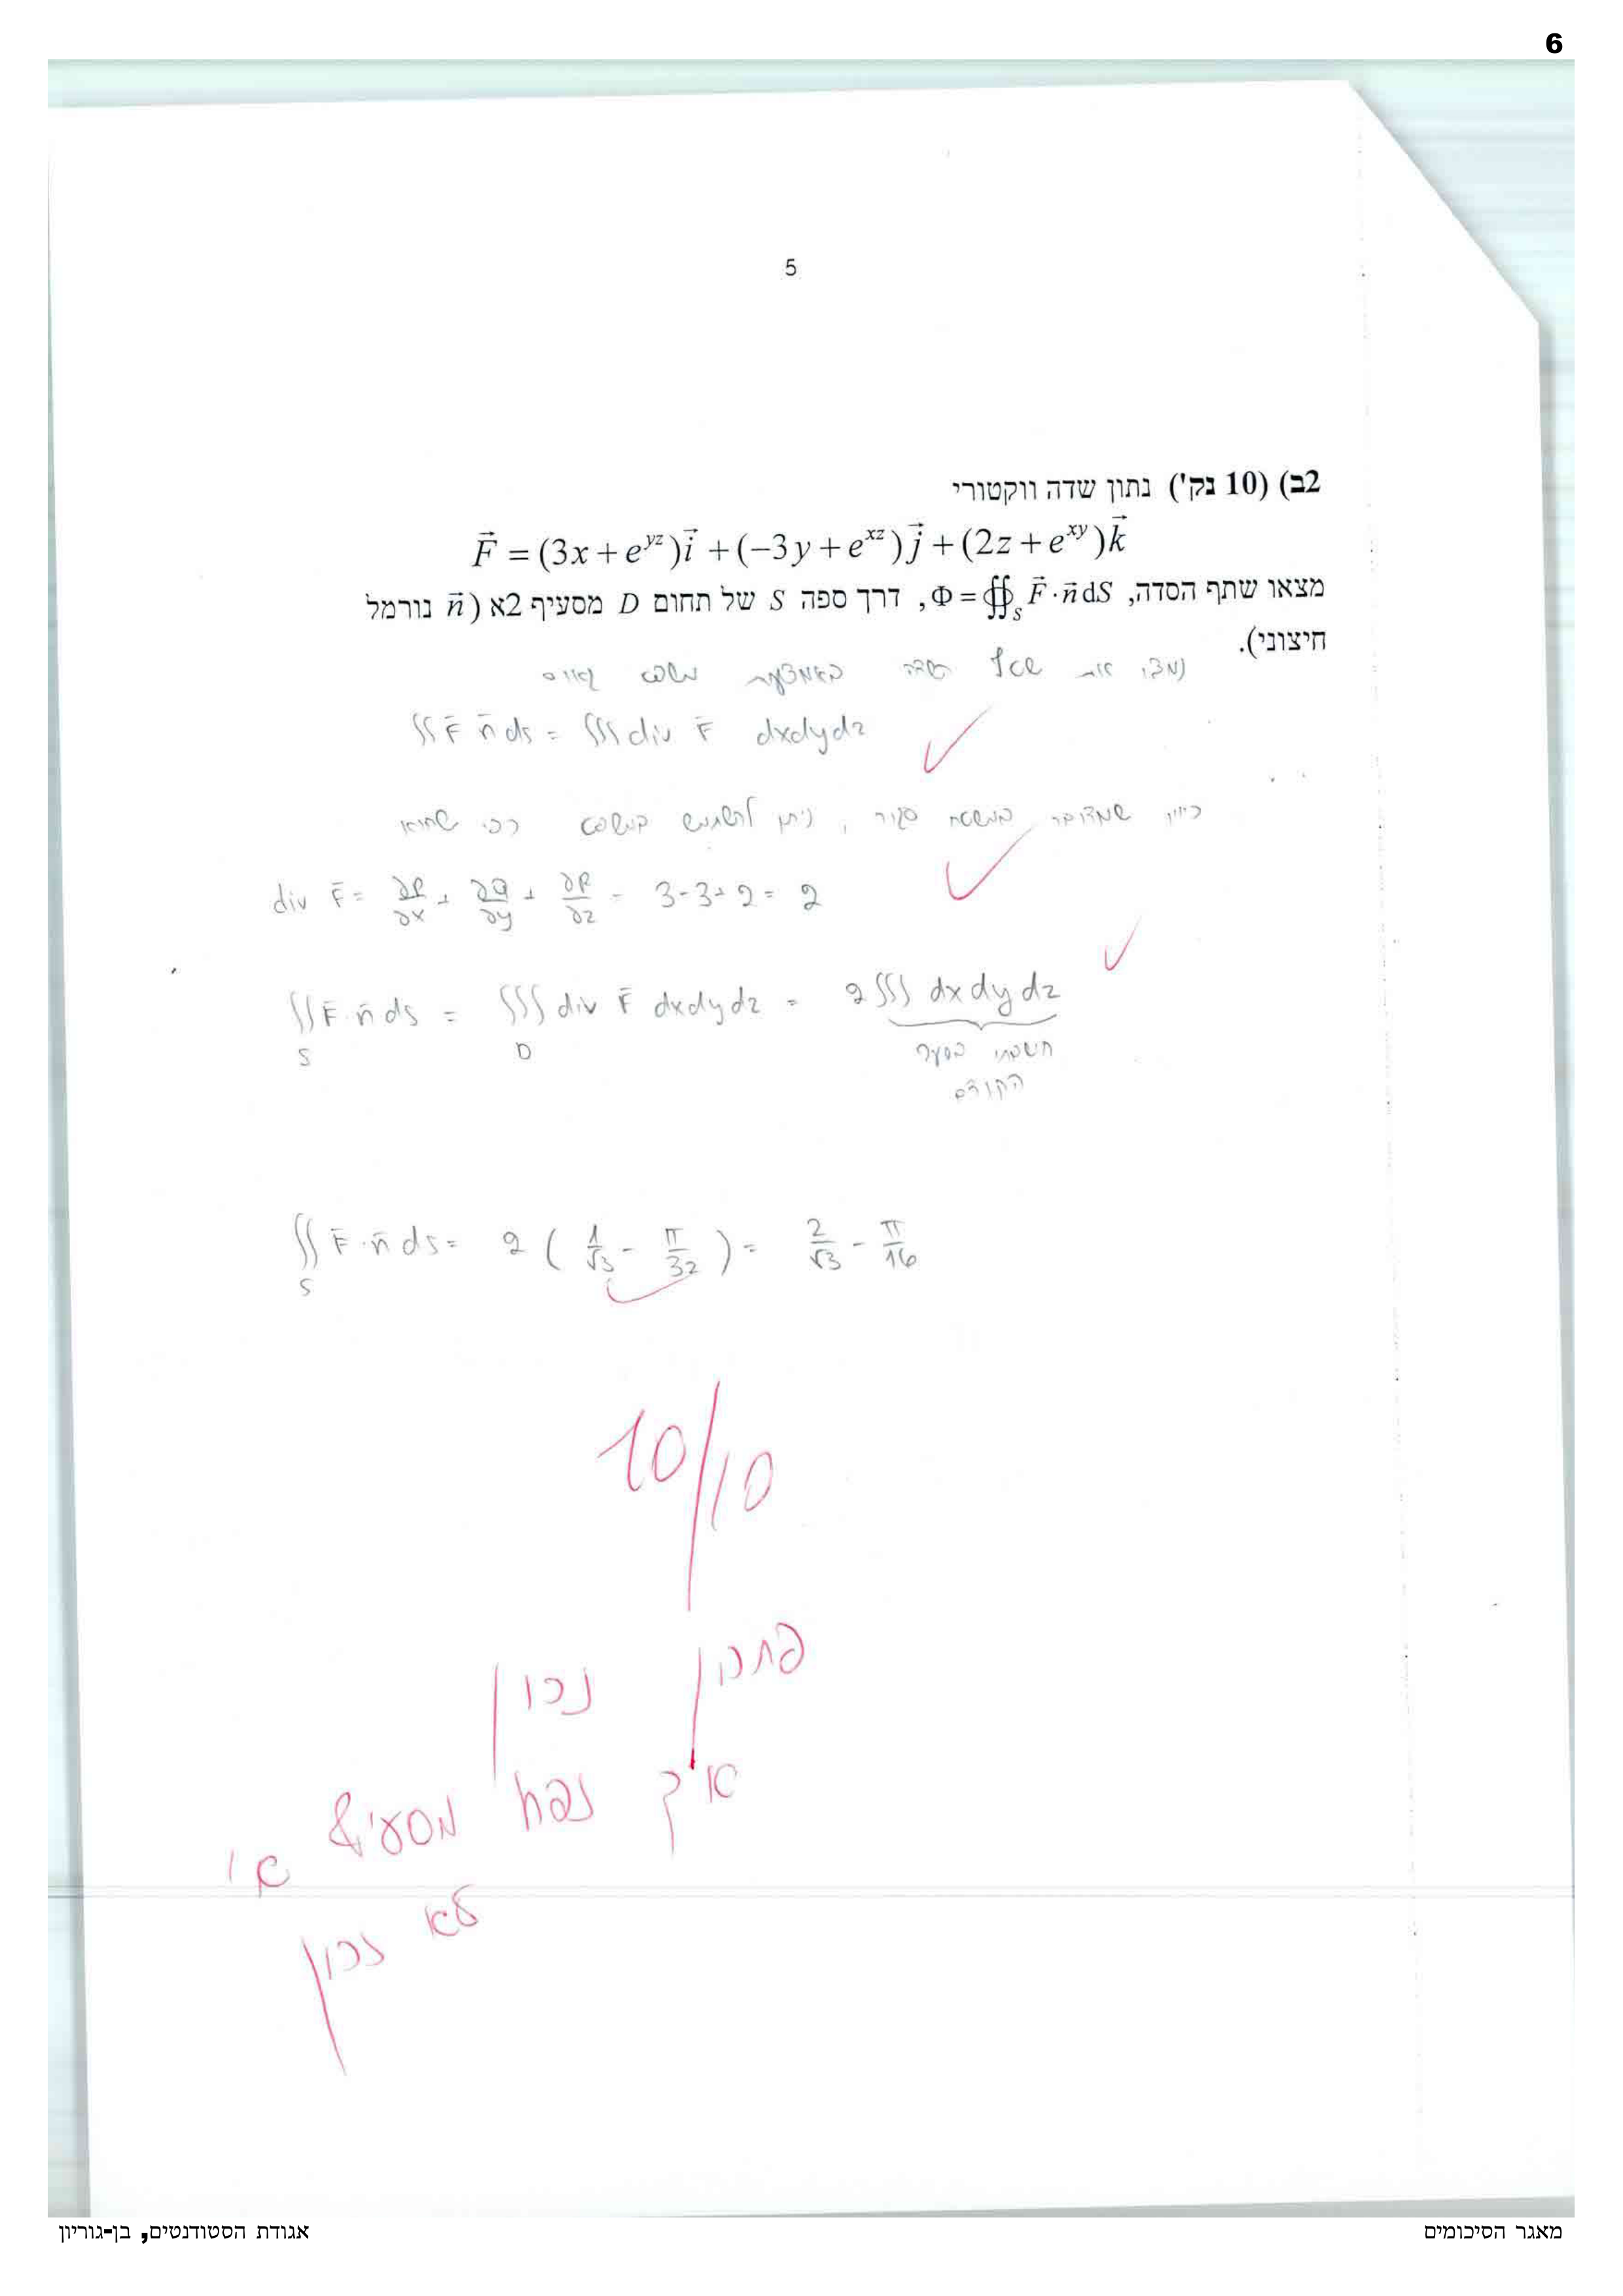 6
5
2ב) (10 נק') נתון שדה ווקטורי
$\vec{F} = (3x + e^{yz})\vec{i} + (-3y + e^{xz})\vec{j} + (2z + e^{xy})\vec{k}$
מצאו שתף הסדה, $\Phi = \oiint_S \vec{F} \cdot \vec{n} dS$, דרך ספה S של תחום D מסעיף 2א ($\vec{n}$ נורמל
חיצוני).
נמצא את שטף השדה באמצעות משפט גאוס
∬ F̄ n̄ ds = ∭ div F̄ dxdydz
כיוון שמדובר במשטח סגור, ניתן להשתמש במשפט כפי שהוא
div F̄ = ∂P/∂x + ∂Q/∂y + ∂R/∂z = 3-3+2 = 2
∬ F̄·n̄ ds = ∭ div F̄ dxdydz = 2∭ dxdydz
S D
חשבתי בסעיף
הקודם
∬ F̄·n̄ ds = 2 ( 1/√3 - π/32 ) = 2/√3 - π/16
S
10/10
פתרון נכון
איך נפח מסעיף א'
לא נכון
מאגר הסיכומים
אגודת הסטודנטים, בן-גוריון